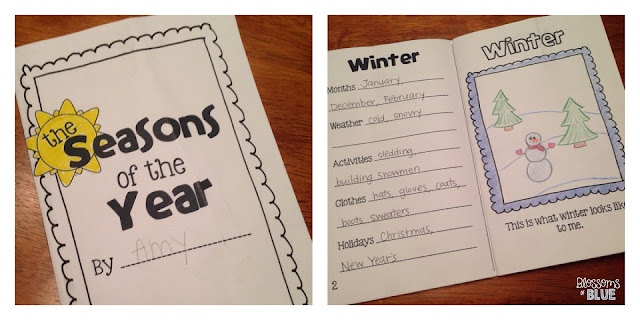 the
Seasons
of the
Year
By Amy
Winter
Months January,
December, February
Weather cold, snowy
Activities sledding,
building snowmen
Clothes hats, gloves, coats,
boots sweaters
Holidays Christmas,
New Year's
2
Winter
This is what winter looks like
to me.
Blossoms
of BLUE